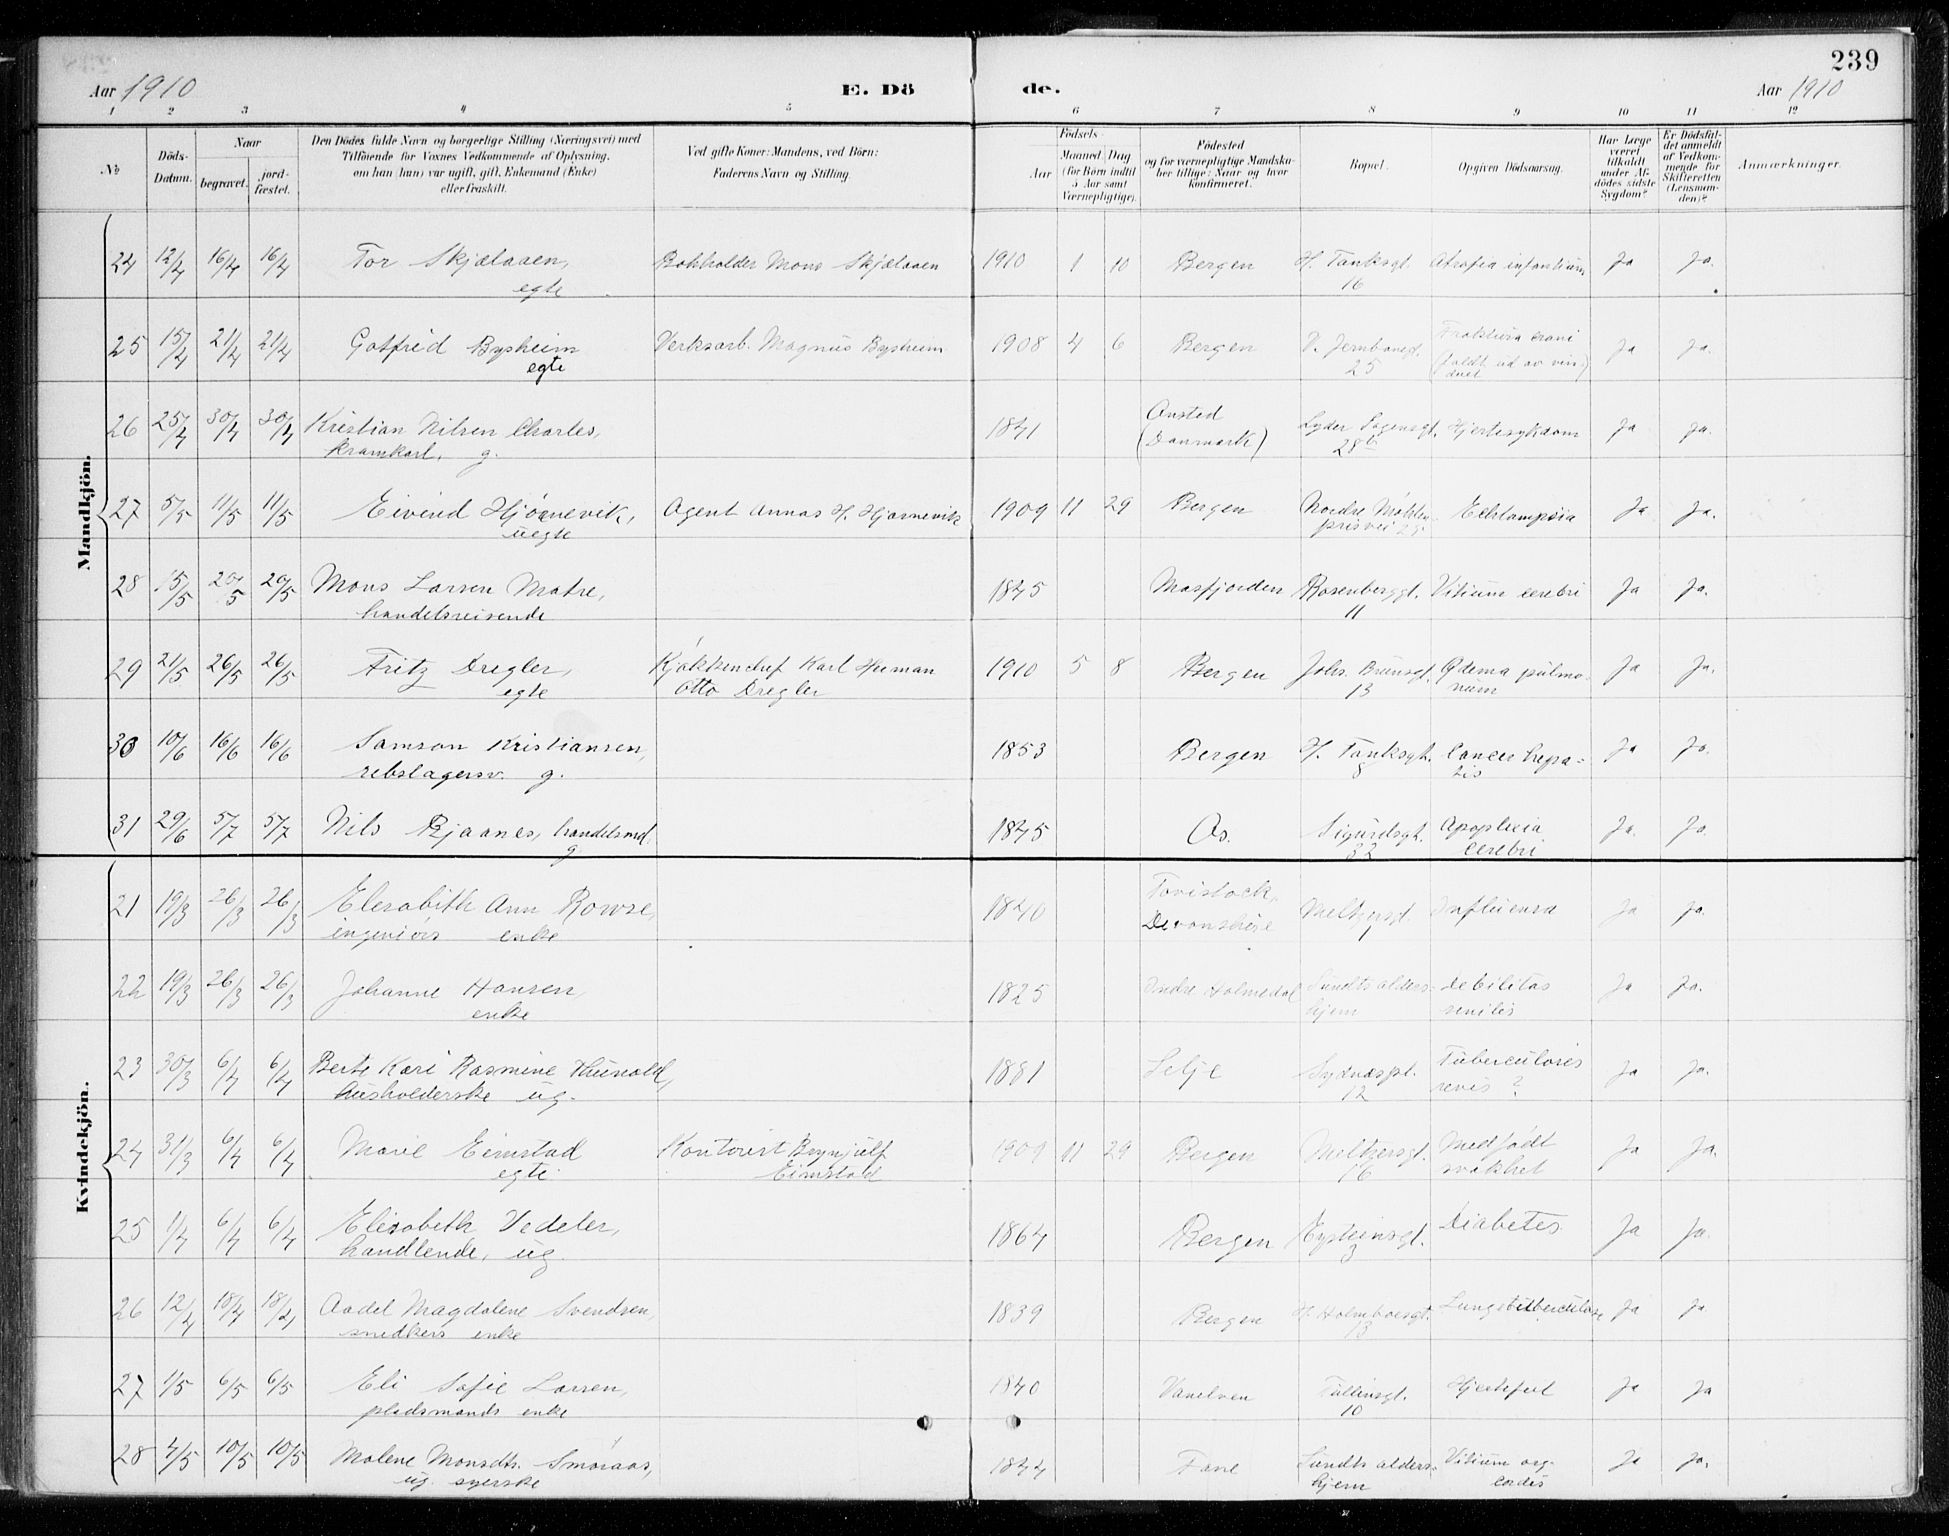 239
Aar 1910 E. Dö de. Aar 1910
1 2 3 4 5 6 7 8 9 10 11 12
No
Döds-Datum.
Naar
begravet.
jord-fæstet.
Den Dödes fulde Navn og borgerlige Stilling (Næringsvei) med
Tilföiende for Voxnes Vedkommende af Oplysning,
om han (hun) var ugift, gift, Enkemand (Enke)
eller fraskilt.
Ved gifte Koner: Mandens, ved Börn:
Faderens Navn og Stilling.
Födsels-
Aar
Maaned Dag
(for Börn indtil
5 Aar samt
Værnepligtige).
Födested
og for værnepligtige Mandska-
ber tillige: Naar og hvor
konfirmeret.
Bopæl.
Opgiven Dödsaarsag.
Har Læge
været
tilkaldt
under Af-
dödes sidste
Sygdom?
Er Dödsfal-
det anmeldt
af Vedkom-
mende for
Skifteretten
(Lensman-
den)?
Anmærkninger.
Mandkjön.
24 12/4 16/4 16/4 Tor Skjælaaen, Bokholder Mons Skjælaaen 1910 1 10 Bergen H. Tanksgt. Atrofia infantium Ja Ja.
egte 16
25 15/4 21/4 21/4 Gotfred Bysheim Verksarb. Magnus Bysheim 1908 4 6 Bergen V. Jernbanegt. Fraktura crani Ja Ja.
egte 25 (faldt ud av vin-
duet)
26 25/4 30/4 30/4 Kristian Nilsen Charles, 1841 Onsted Lyder Sagensgt. Hjertesykdom Ja Ja.
kramkarl, g. (Danmark) 28b
27 5/5 11/5 11/5 Eivind Hjørnevik, Agent Annas H. Hjørnevik 1909 11 29 Bergen Nordre Møhlen- Eclampsia Ja Ja.
uegte prisvei
28 15/5 20/5 20/5 Mons Larsen Matre, 1845 Masfjorden Rosenberggt. Vitium cerebri Ja Ja.
handelsreisende 11
29 21/5 26/5 26/5 Fritz Dregler, Kjøkkenchef Karl Herman 1910 5 8 Bergen Johs. Brunsgt. Ødema pulmo- Ja Ja.
egte Otto Dregler 13 num
30 10/6 16/6 16/6 Samson Kristiansen, 1853 Bergen H. Tanksgt. Cancer hepa- Ja Ja.
rebslagersv. g. 8 tis
31 29/6 5/7 5/7 Nils Bjaanes, handelsmd. 1845 Os. Sigurdsgt. Apoplexia Ja. Ja.
g 32 cerebri
Kvindekjön.
21 19/3 26/3 26/3 Elesabith Ann Rowse, 1840 Tavistock, Meltzersgt. Influensa Ja Ja.
ingeniørs enke Devonshire 1
22 19/3 26/3 26/3 Johanne Hansen, 1825 Indre Holmedal Sundts alders- Debilitas Ja Ja.
enke hjem senilis
23 30/3 6/4 6/4 Berte Kari Rasmine Thunold, 1881 Selje Sydnæspl. Tuberculosis Ja Ja.
husholderske ug. 12 renis ?
24 31/3 6/4 6/4 Marie Eimstad Kontorist Brynjulf 1909 11 29 Bergen Meltzersgt. Medfødt Ja Ja.
egte Eimstad 16 svakhet
25 1/4 6/4 6/4 Elisabeth Vedeler, 1864 Bergen Eysteinsgt. Diabetes Ja Ja.
handlende, ug. 3
26 12/4 18/4 18/4 Aadel Magdalene Svendsen, 1839 Bergen H. Holmboesgt. Lungetuberculose Ja Ja.
snedkers enke 13
27 1/5 6/5 6/5 Eli Sofie Larsen, 1840 Vanelven Tullinsgt. Hjertefeil Ja Ja
pladsmands enke 10
28 4/5 10/5 10/5 Malene Monsdtr. Smøraas, 1844 Fane Sundts alders- Vitium org- Ja Ja.
ug. syerske hjem cordis